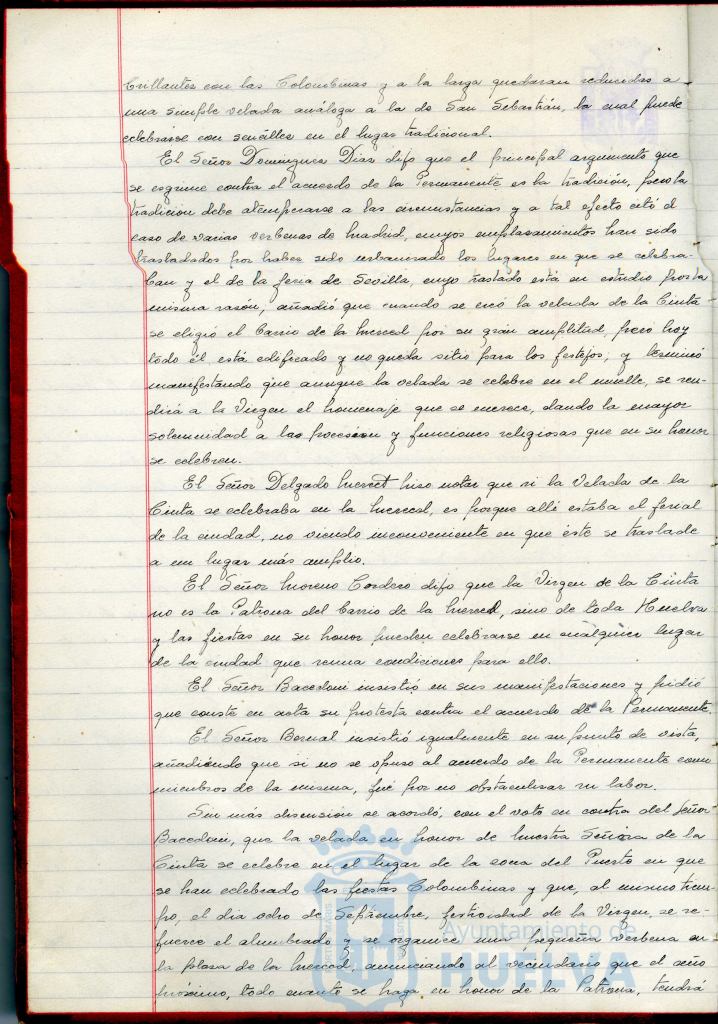 brillantes con las Colombinas y a la larga quedaran reducidas a
una simple velada análoga a la de San Sebastián, la cual puede
celebrarse con sencillez en el lugar tradicional.
El Señor Dominguez Diaz dijo que el principal argumento que
se esgrime contra el acuerdo de la Permanente, es la tradición, pero la
tradición debe atemperarse a las circunstancias y a tal efecto citó el
caso de varias verbenas de Madrid, cuyos emplazamientos han sido
trasladados por haber sido urbanizado los lugares en que se celebra-
ban y el de la feria de Sevilla, cuyo traslado está en estudio por la
misma razón, añadió que cuando se creó la velada de la Cinta
se eligió el barrio de la Merced por su gran amplitud, pero hoy
todo él está edificado y no queda sitio para los festejos, y terminó
manifestando que aunque la velada se celebre en el muelle, se ren-
dirá a la Virgen el homenaje que se merece, dando la mayor
solemnidad a las procesión y funciones religiosas que en su honor
se celebren.
El Señor Delgado hizo notar que si la Velada de la
Cinta se celebraba en la Merced, es porque allí estaba el ferial
de la ciudad, no viendo inconveniente en que éste se traslade
a un lugar más amplio.
El Señor Moreno Cordero dijo que la Virgen de la Cinta
no es la Patrona del barrio de la Merced, sino de toda Huelva
y las fiestas en su honor pueden celebrarse en cualquier lugar
de la ciudad que reuna condiciones para ello.
El Señor Bacedoni insistió en sus manifestaciones y pidió
que conste en acta su protesta contra el acuerdo de la Permanente.
El Señor Bernal insistió igualmente en su punto de vista,
añadiendo que si no se opuso al acuerdo de la Permanente como
miembros de la misma, fué por no obstaculizar su labor.
Sin más discusion se acordó, con el voto en contra del Señor
Bacedoni, que la velada en honor de Nuestra Señora de la
Cinta se celebre en el lugar de la zona del Puerto en que
se han celebrado las fiestas Colombinas y que, al mismo tiem-
po, el dia ocho de Septiembre, festividad de la Virgen, se re-
fuerce el alumbrado y se organice una pequeña verbena en
la plaza de la Merced, anunciando al vecindario que el año
próximo, todo cuanto se haga en honor de la Patrona, tendrá
Ayuntamiento de
HUELVA